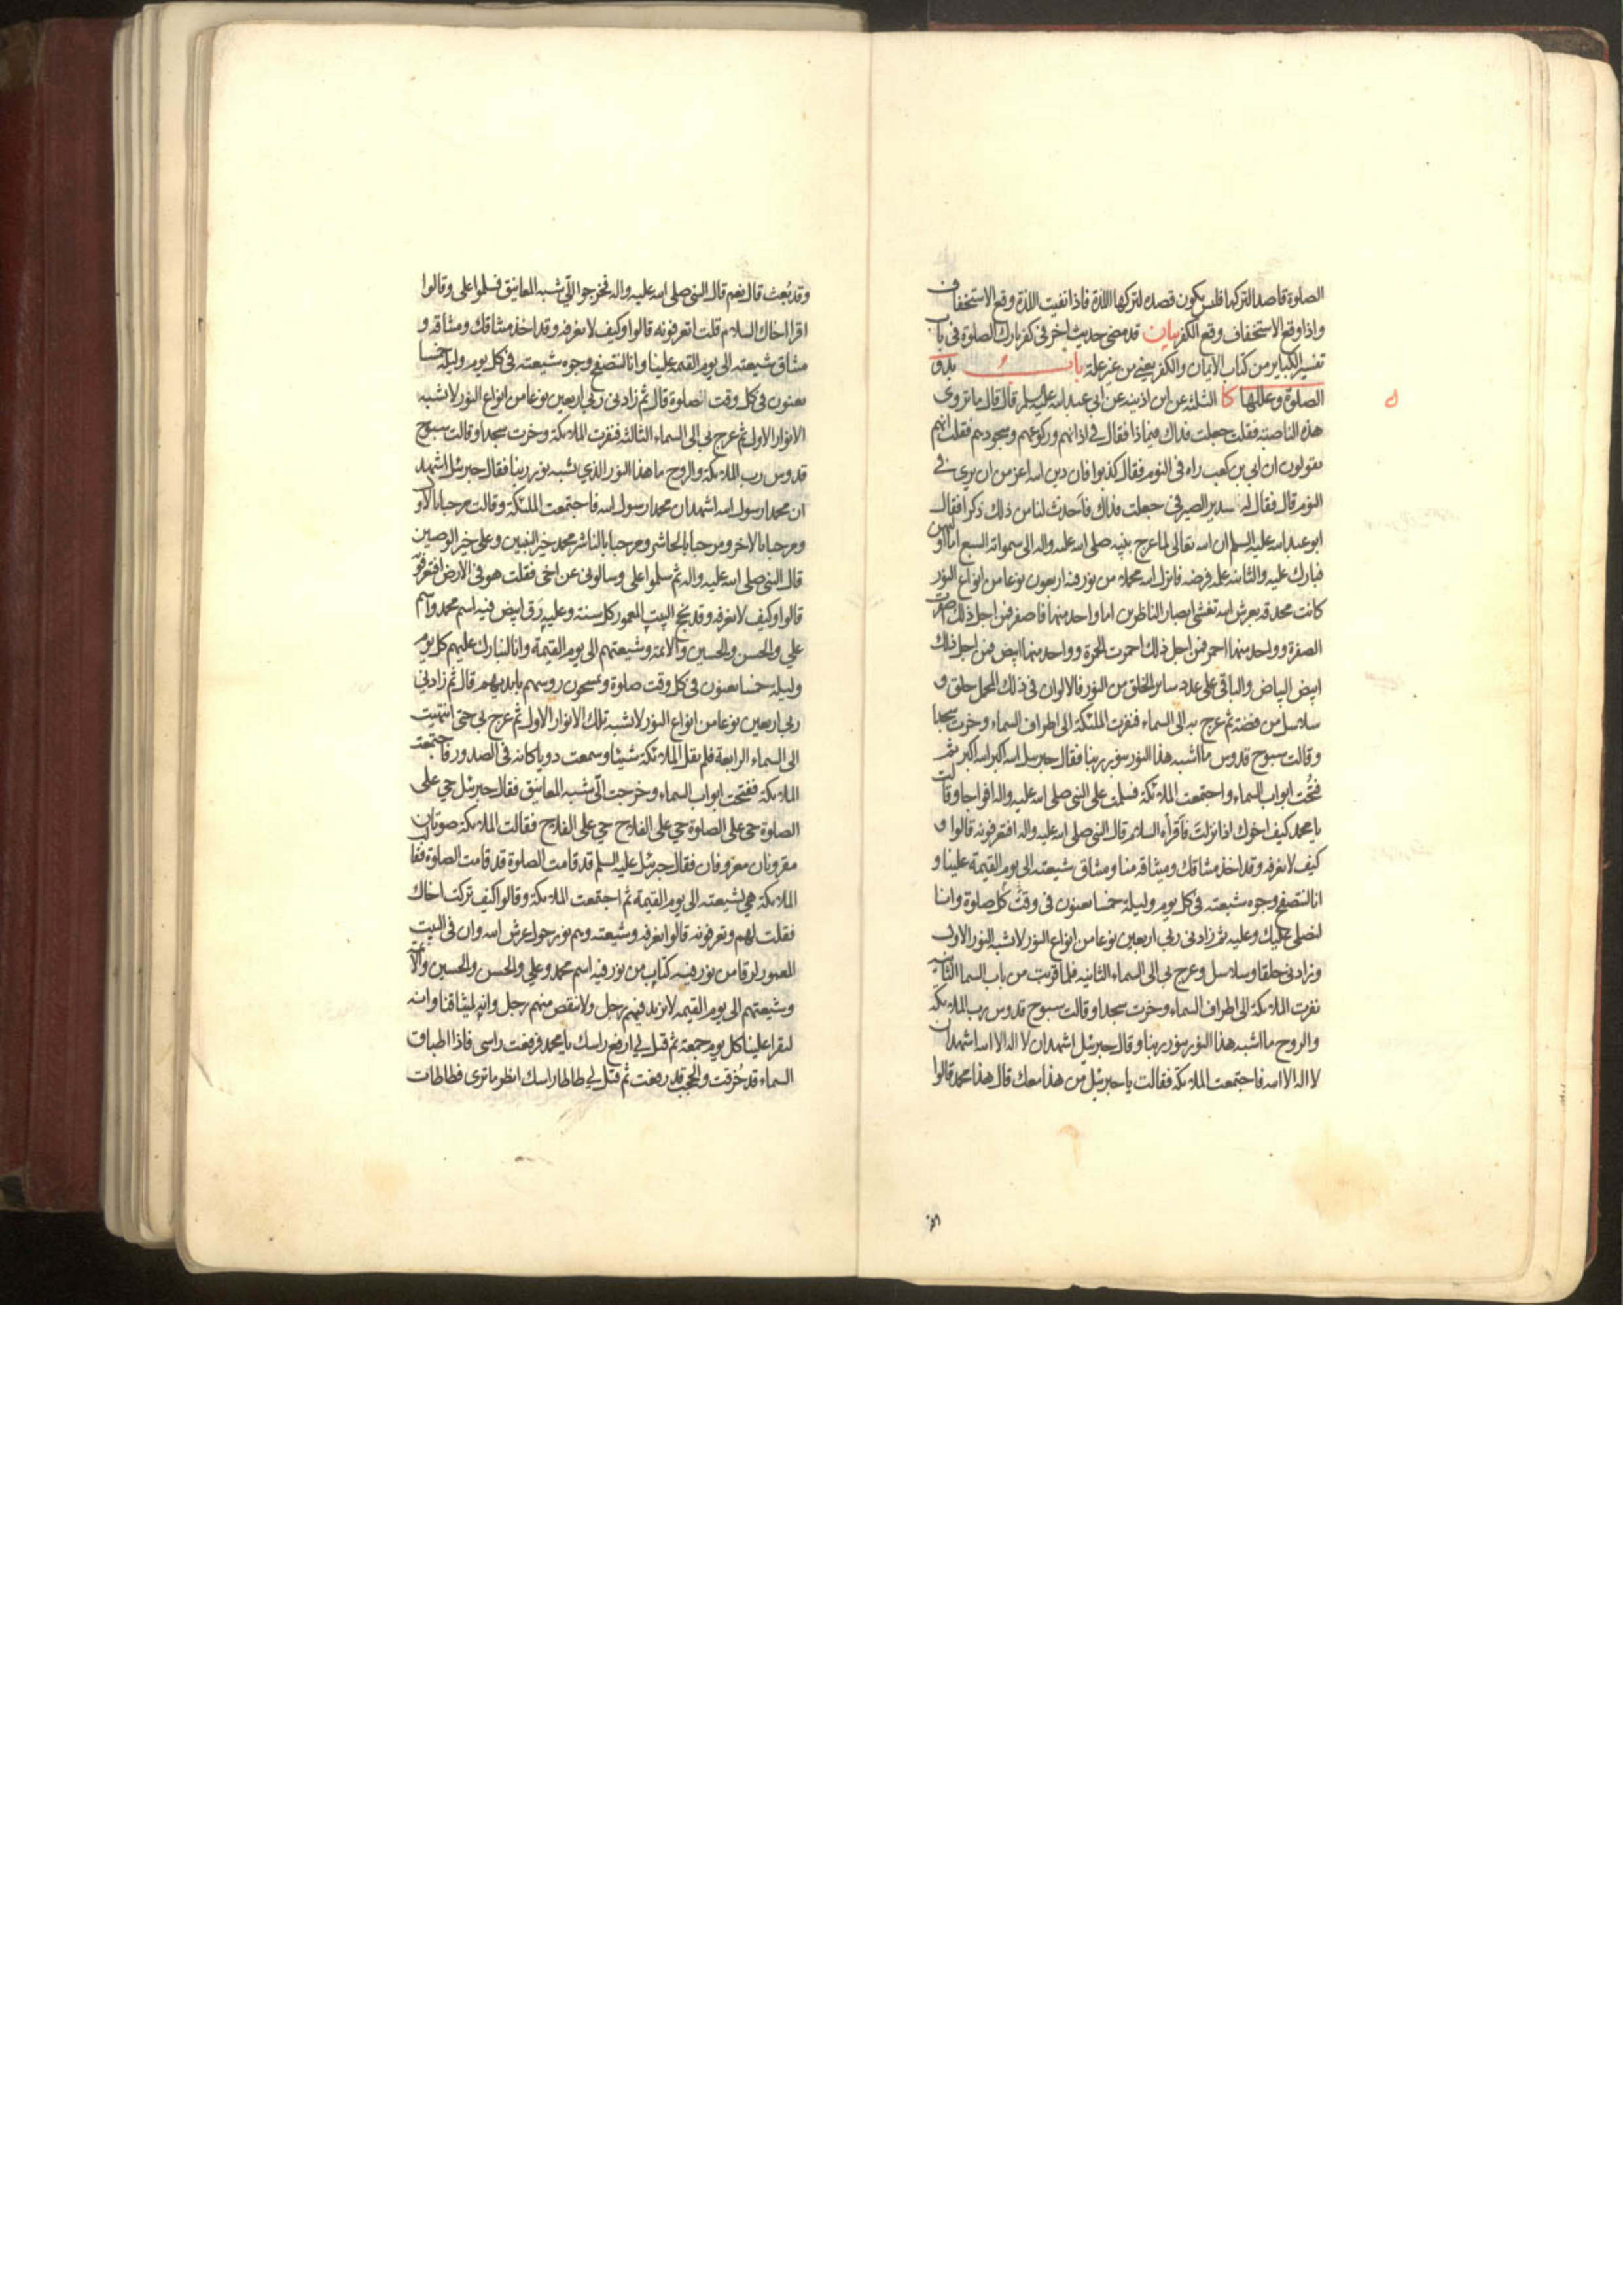 الصلوة قاصدا لتركها فليس يكون قصده لتركها اللذة فاذا نفيت اللذة وقع الاستخفاف
واذا وقع الاستخفاف وقع الكفر بيان قد مضى حديث اخر فى كفر تارك الصلوة فى باب
تفسير الكباير من كتاب الايمان والكفر يعنى من غير علة باب بدو
الصلوة وعللها كا الثلثة عن ابن اذينه عن ابى عبد الله عليه السلم قال قال ما تروى
هذه الناصبه فقلت جعلت فداك فيماذا فقال فى اذانهم وركوعهم وسجودهم فقلت انهم
يقولون ان ابى بن كعب راه فى النوم فقال كذبوا فان دين الله اعز من ان يرى فى
النوم قال فقال له سدير الصيرفى جعلت فداك فاحدث لنا من ذلك ذكرا فقال
ابو عبد الله عليه السلم ان الله تعالى لما عرج بنبيه صلى الله عليه واله الى سمواته السبع اما اوليهن
فبارك عليه والثانية علمه فرضه فانزل الله محملا من نور فيه اربعون نوعا من انواع النور
كانت محدقة بعرش الله تغشى ابصار الناظرين اما واحد منها فاصفر فمن اجل ذلك اصفرت
الصفرة وواحد منها احمر فمن اجل ذلك احمرت الحمرة وواحد منها ابيض فمن اجل ذلك
ابيض البياض والباقى على عدد ساير الخلق من النور فالالوان فى ذلك المحمل حلق و
سلاسل من فضة ثم عرج به الى السماء فنفرت الملئكة الى اطراف السماء وخرت سجدا
وقالت سبوح قدوس ما اشبه هذا النور بنور ربنا فقال جبرئيل الله اكبر الله اكبر ثم
فتحت ابواب السماء واجتمعت الملائكة فسلمت على النبى صلى الله عليه واله افواجا وقالت
يا محمد كيف اخوك اذا نزلت فاقرأه السلام قال النبى صلى الله عليه واله افتعرفونه قالوا و
كيف لا نعرفه وقد اخذ ميثاقك وميثاقه منا وميثاق شيعته الى يوم القيمة علينا و
انا لنتصفح وجوه شيعته فى كل يوم وليلة خمسا يعنون فى وقت كل صلوة وانا
لنصلى عليك وعليه ثم زادنى ربى اربعين نوعا من انواع النور لا تشبه النور الاول
وزادنى حلقا وسلاسل وعرج بى الى السماء الثانية فلما قربت من باب السما الثانية
نفرت الملائكة الى اطراف السماء وخرت سجدا وقالت سبوح قدوس رب الملائكة
والروح ما اشبه هذا النور بنور ربنا وقال جبرئيل اشهد ان لا اله الا الله اشهد ان
لا اله الا الله فاجتمعت الملائكة فقالت يا جبرئيل من هذا معك قال هذا محمد قالوا
وقد بعث قال نعم قال النبى صلى الله عليه واله فخرجوا الى شبه المعانيق فسلموا على وقالوا
اقرا اخاك السلام قلت اتعرفونه قالوا وكيف لا نعرفه وقد اخذ ميثاقك وميثاقه و
ميثاق شيعته الى يوم القيمة علينا وانا لنتصفح وجوه شيعته فى كل يوم وليلة خمسا
يعنون فى كل وقت الصلوة قال ثم زادنى ربى اربعين نوعا من انواع النور لا تشبه
الانوار الاول ثم عرج بى الى السماء الثالثه فنفرت الملائكة وخرت سجدا وقالت سبوح
قدوس رب الملائكة والروح ما هذا النور الذى يشبه نور ربنا فقال جبرئيل اشهد
ان محمدا رسول الله اشهد ان محمدا رسول الله فاجتمعت الملئكة وقالت مرحبا بالاول
ومرحبا بالاخر ومرحبا بالحاشر ومرحبا بالناشر محمد خير النبيين وعلى خير الوصيين
قال النبى صلى الله عليه واله ثم سلموا على وسالونى عن اخى فقلت هو فى الارض افتعرفونه
قالوا وكيف لا نعرفه وقد نحج البيت المعمور كل سنة وعليه رق ابيض فيه اسم محمد واسم
على والحسن والحسين والائمة وشيعتهم الى يوم القيمة وانا لنبارك عليهم كل يوم
وليلة خمسا يعنون فى كل وقت صلوة ويمسحون رؤسهم بايديهم قال ثم زادنى
ربى اربعين نوعا من انواع النور لا تشبه تلك الانوار الاول ثم عرج بى حتى انتهيت
الى السماء الرابعة فلم تقل الملائكة شيئا وسمعت دويا كانه فى الصدور فاجتمعت
الملائكة ففتحت ابواب السماء وخرجت الى شبه المعانيق فقال جبرئيل حى على
الصلوة حى على الصلوة حى على الفلاح حى على الفلاح فقالت الملائكة صوتان
مقرونان معروفان فقال جبرئيل عليه السلم قد قامت الصلوة قد قامت الصلوة فقالت
الملائكة هى لشيعته الى يوم القيمة ثم اجتمعت الملائكة وقالوا كيف تركت اخاك
فقلت لهم وتعرفونه قالوا نعرفه وشيعته وهم نور حول عرش الله وان فى البيت
المعمور لرقا من نور فيه كتاب من نور فيه اسم محمد وعلى والحسن والحسين والائمة
وشيعتهم الى يوم القيمه لا يزيد فيهم رجل ولا ينقص منهم رجل وانه لميثاقنا وانه
ليقرا علينا كل يوم جمعة ثم قيل لى ارفع راسك يا محمد فرفعت راسى فاذا اطباق
السماء قد خرقت والحجب قد رفعت ثم قيل لى طاطا راسك انظر ما ترى فطاطات